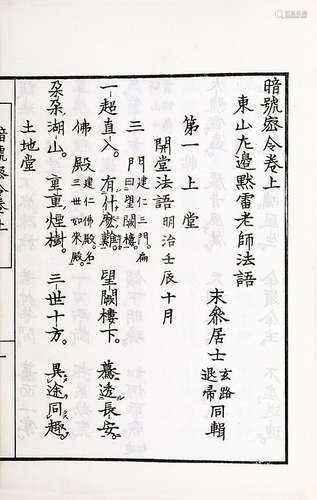 暗號密令卷上
東山左邉默雷老師法語
末參居士 玄路 退帰 同輯
第一上堂
開堂法語 明治壬辰十月
三門 建仁三門。扁曰望闕樓。
一超直入。有什麼難。望闕樓下。驀透長安。
佛殿 建仁佛殿。名三世如來殿。
朶朶湖山。重重煙樹。三世十方。異途同趣。
土地堂
暗號密令卷上
一